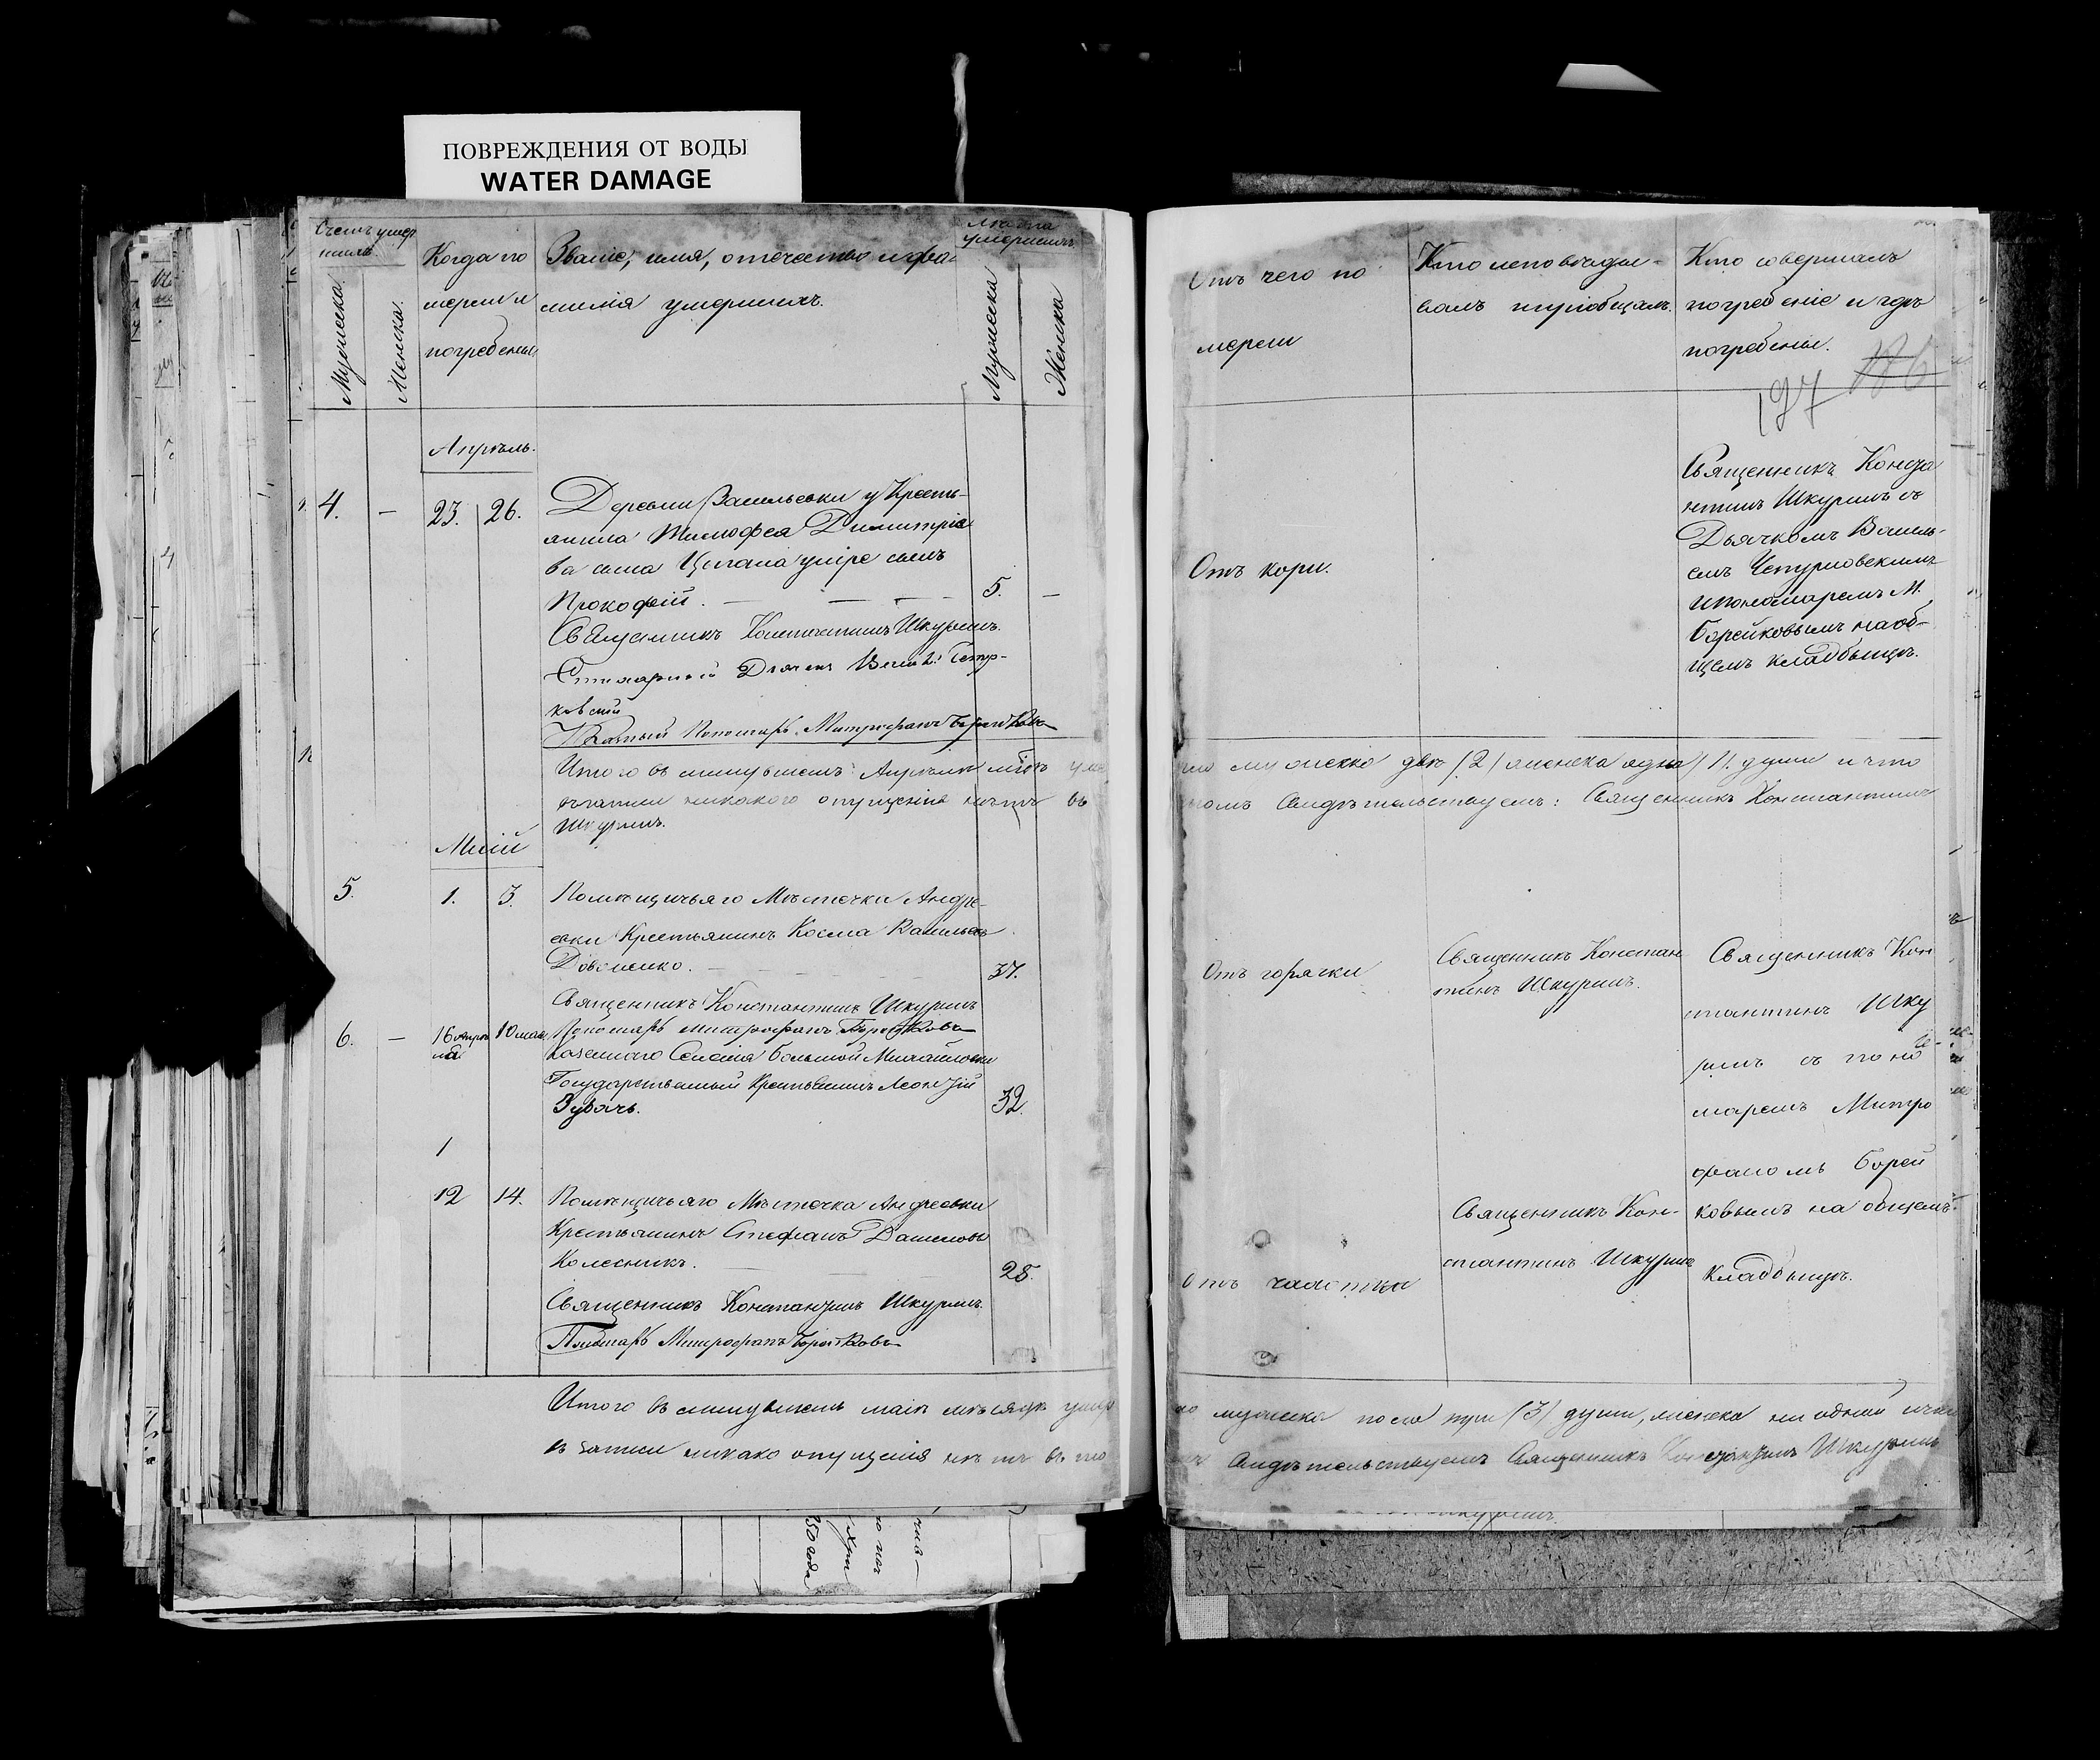 ПОВРЕЖДЕНИЯ ОТ ВОДЫ
WATER DAMAGE
Счетъ умер
шихъ.
Мужеска.
Женска.
Когда по
мерли и
погребены
Званіе, имя, отечество и фа-
милія умершихъ.
Лѣта
умершихъ.
Мужеска
Женска
Апрѣль.
4. — 23. 26.
Деревни Васильевки у Кресть-
янина Тимофея Димитріе
ва сына Цыгана умре сынъ
Прокофій. — — — 5. —
Священникъ Константинъ Шкуринъ.
Дьячекъ
ковскій
Пономарь Митрофанъ Борейковъ
Итого въ минувшемъ Апрѣлѣ м-цѣ уме
никакого опущенія нѣтъ въ
Шкуринъ.
Маій
5. 1. 3.
Помѣщичьяго Мѣстечка Андре-
евки Крестьянинъ Косма Васильевъ
Довженко. — 37.
Священникъ Константинъ Шкуринъ
Пономарь Митрофанъ Борейковъ
6. — 16 апрѣ 10 мая
ля
Казеннаго Селенія Большой Михайловки
Государственный Крестьянинъ Леонтій
Зубачь. 32.
1
12 14.
Помѣщичьяго Мѣстечка Андреевки
Крестьянинъ Стефанъ Даниловъ
Колесникъ. 28.
Священникъ Константинъ Шкуринъ.
Пономарь Митрофанъ Борейковъ
Итого въ минувшемъ маіѣ мѣсяцѣ умер
въ записи никако опущенія нѣтъ въ то
Отъ чего по
мерли
Кто исповѣды-
валъ и пріобщалъ.
Кто совершалъ
погребеніе и гдѣ
погребены.
186
197
Отъ кори.
Священникъ Конста
нтинъ Шкуринъ съ
Дьячкомъ Василь-
емъ
и пономаремъ М.
Борейковымъ на об-
щемъ кладбищѣ.
ло мужеска двѣ (2) женска одна (1) души и что
томъ свидѣтельствуемъ: Священникъ Константинъ
Отъ горячки
Священникъ Констан
тинъ Шкуринъ.
Священникъ Кон
стантинъ Шку
ринъ съ поно
маремъ Митро
фаномъ Борей
ковымъ на общемъ
кладбищѣ.
Священникъ Кон-
стантинъ Шкуринъ
Отъ чахотки
ло мужеска пола три (3) души, женска ни одной и что
свидѣтельствуемъ Священникъ Константинъ Шкуринъ